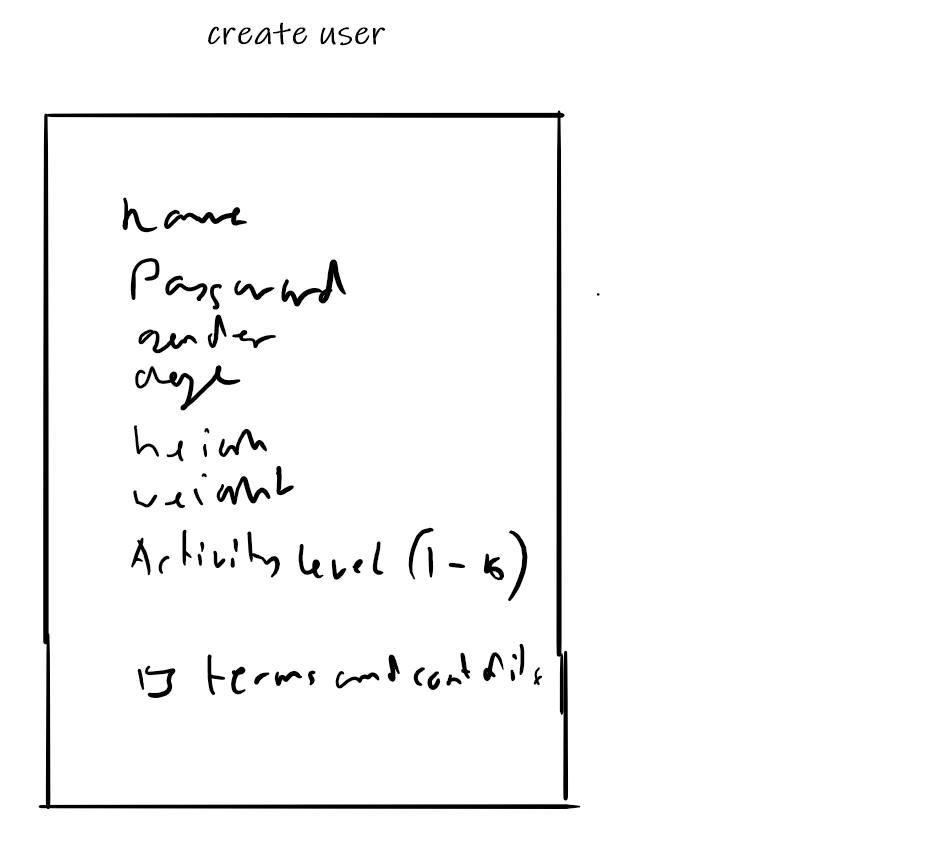 create user
name
Password
gender
age
heigh
weight
Activity level (1 -
terms and